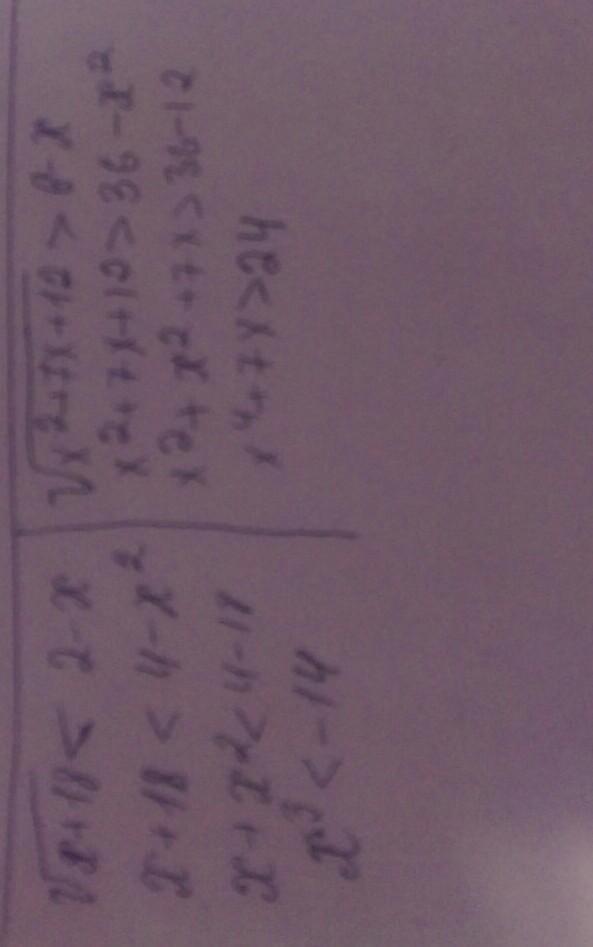 √x+18 < 2-x
x+18 < 4-x²
x+x²<4-18
x³<-14
√x²+7x+12 > 6-x
x²+7x+12>36-x²
x²+x²+7x>36-12
x⁴+7x>24